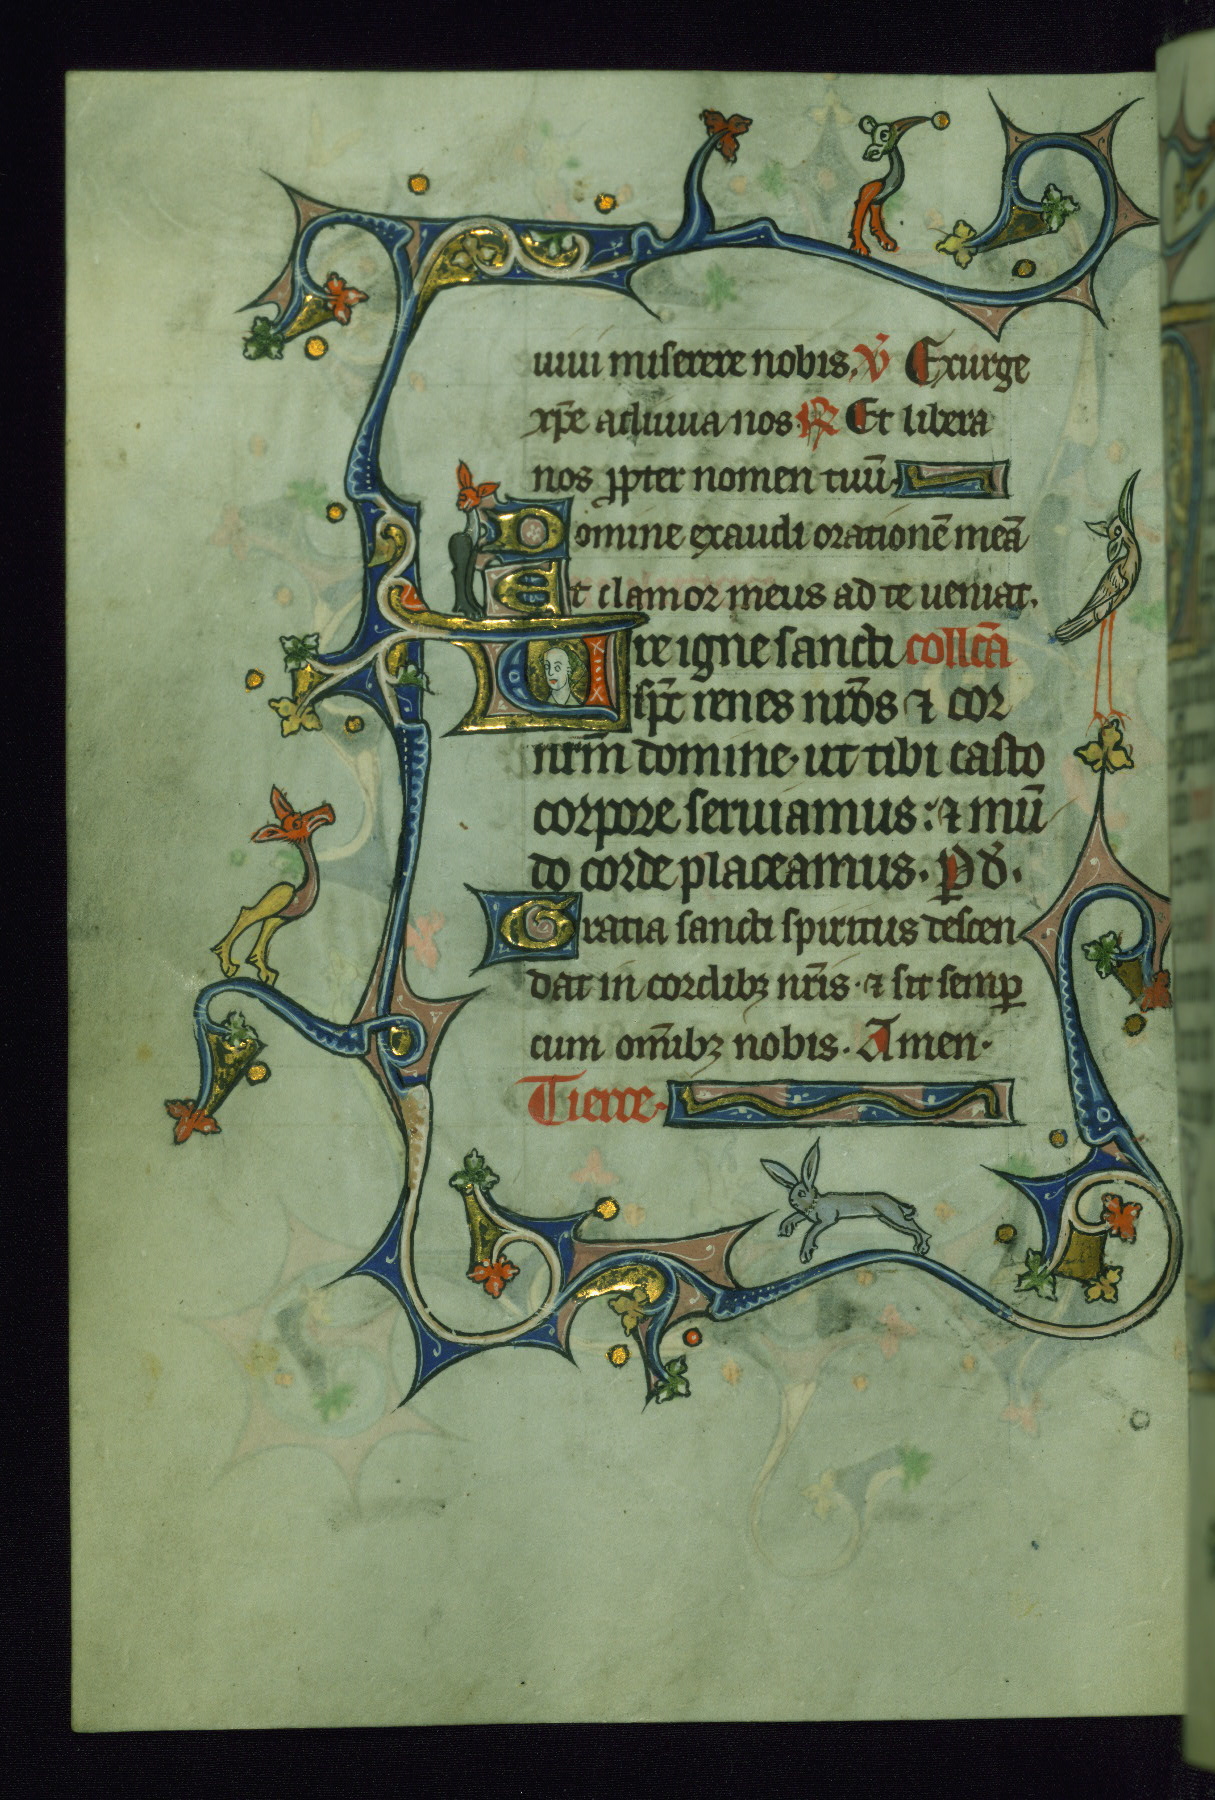 uiui miserere nobis. V̄ Exurge
xp̄e adiuua nos R̄ Et libera
nos ꝓpter nomen tuū.
Domine exaudi orationē meā
Et clamor meus ad te ueniat.
Ure igne sancti collc̄a
sp̄c renes nr̄os ⁊ cor
nrm̄ domine. ut tibi casto
corpore seruiamus: ⁊ mū
do corde placeamus. P d̄.
Gratia sancti spiritus descen
dat in cordibꝫ nr̄is. ⁊ sit semꝑ
cum om̄ibꝫ nobis. Amen.
Tierce.